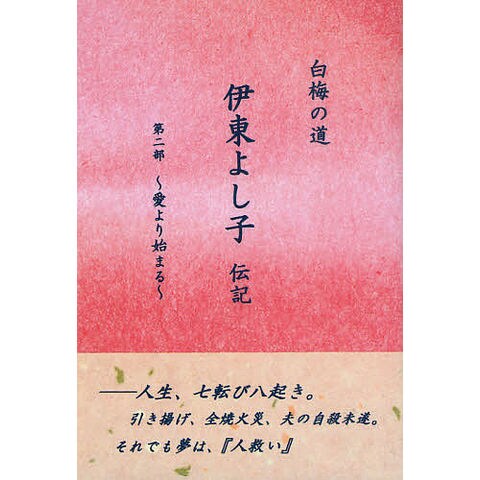 白梅の道
伊東よし子 伝記
第二部 〜愛より始まる〜
――人生、七転び八起き。
引き揚げ、全焼火災、夫の自殺未遂。
それでも夢は、『人救い』